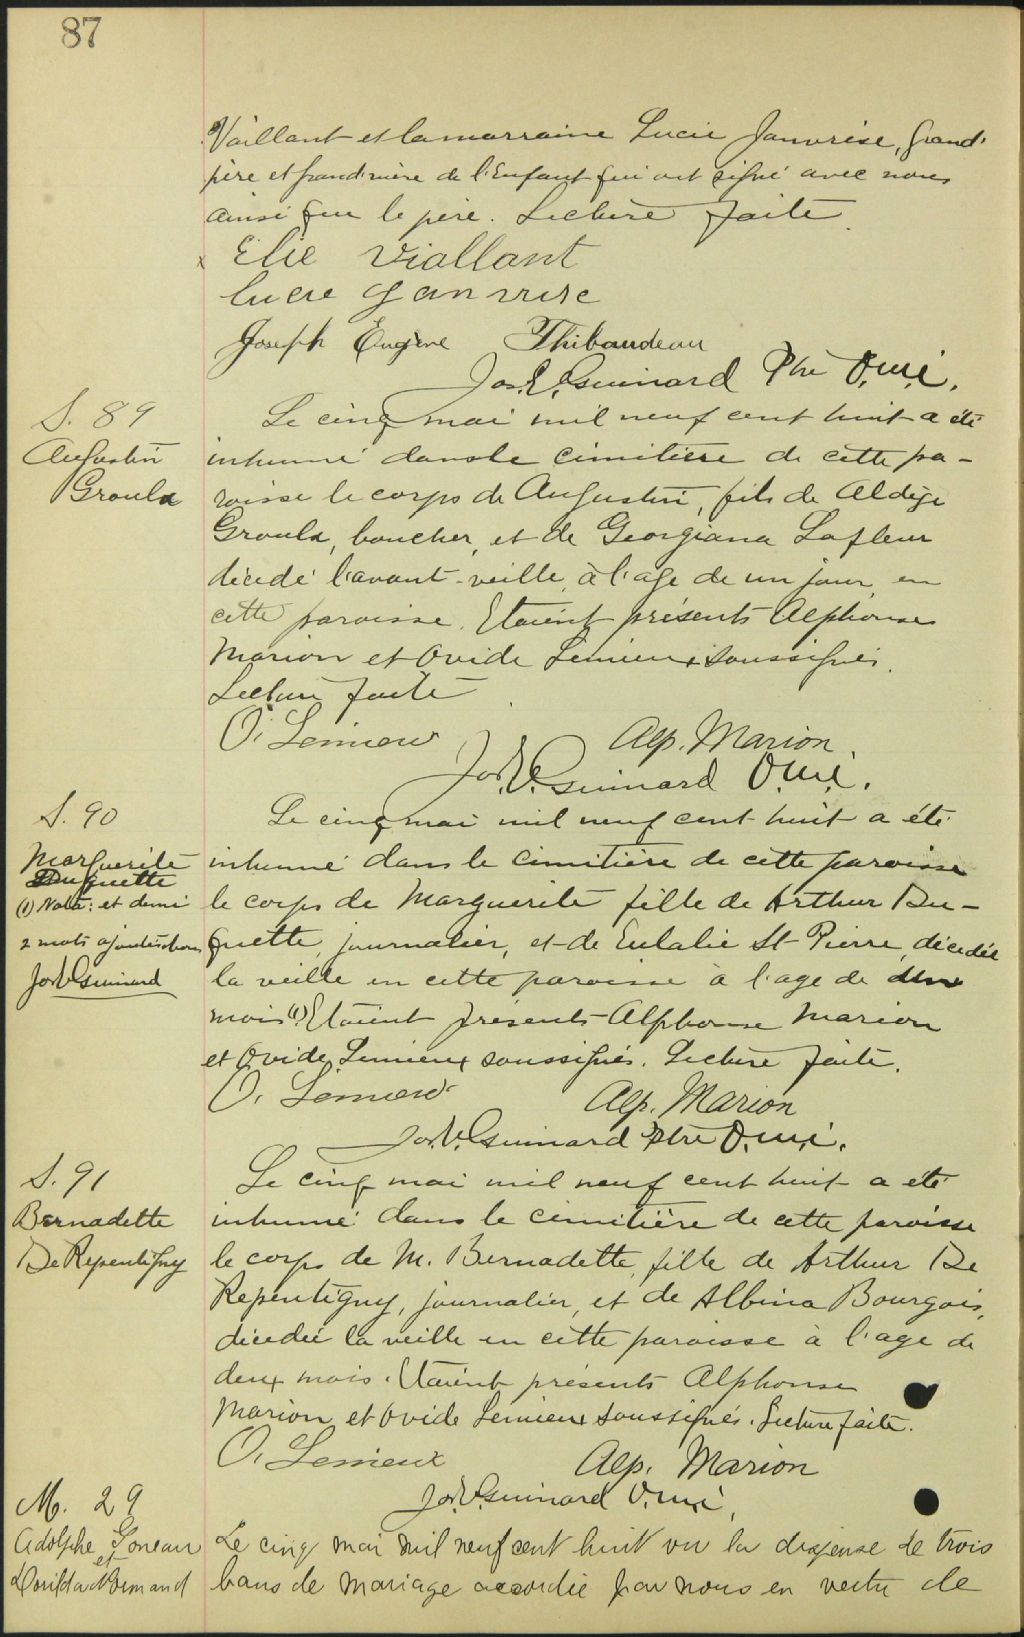 87
Vaillant et la marraine Lucie Janvrise, grand'
père et grand'mère de l'Enfant qui ont signé avec nous
ainsi que le père. Lecture faite.
x Elie Viallant
Lucie Janvrise
Joseph Eugène Thibaudeau
Jos. E. Guinard Ptre O.m.i.
S. 89
Augustin
Groulx
Le cinq mai mil neuf cent huit a été
inhumé dans le cimitière de cette pa-
roisse le corps de Augustin, fils de Aldége
Groulx, boucher, et de Georgiana Lafleur
décédé l'avant-veille, à l'age de un jour, en
cette paroisse. Etaient présents Alphonse
Marion et Ovide Lemieux soussignés.
Lecture faite
O. Lemieux Alp. Marion
Jos. E. Guinard O.m.i.
S. 90
Marguerite
Duquette
(1) Nota: et demi
2 mots ajoutés bons
Jos E Guinard
Le cinq mai mil neuf cent huit a été
inhumé dans le cimitière de cette paroisse
le corps de Marguerite fille de Arthur Du-
quette, journalier, et de Eulalie St-Pierre, décédée
la veille en cette paroisse à l'age de
mois (1). Etaient présents Alphonse Marion
et Ovide Lemieux soussignés. Lecture faite.
O. Lemieux Alp. Marion
Jos. E. Guinard Ptre O.m.i.
S. 91
Bernadette
De Repentigny
Le cinq mai mil neuf cent huit a été
inhumé dans le cimitière de cette paroisse
le corps de M. Bernadette, fille de Arthur De
Repentigny, journalier, et de Albina Bourgois,
décédée la veille en cette paroisse à l'age de
deux mois. Etaient présents Alphonse
Marion et Ovide Lemieux soussignés. Lecture faite.
O. Lemieux Alp. Marion
Jos. E. Guinard O.m.i.
M. 29
Adolphe Goneau
et
Dorilda Normand
Le cinq mai mil neuf cent huit vu la dispense de trois
bans de mariage accordée par nous en vertu de